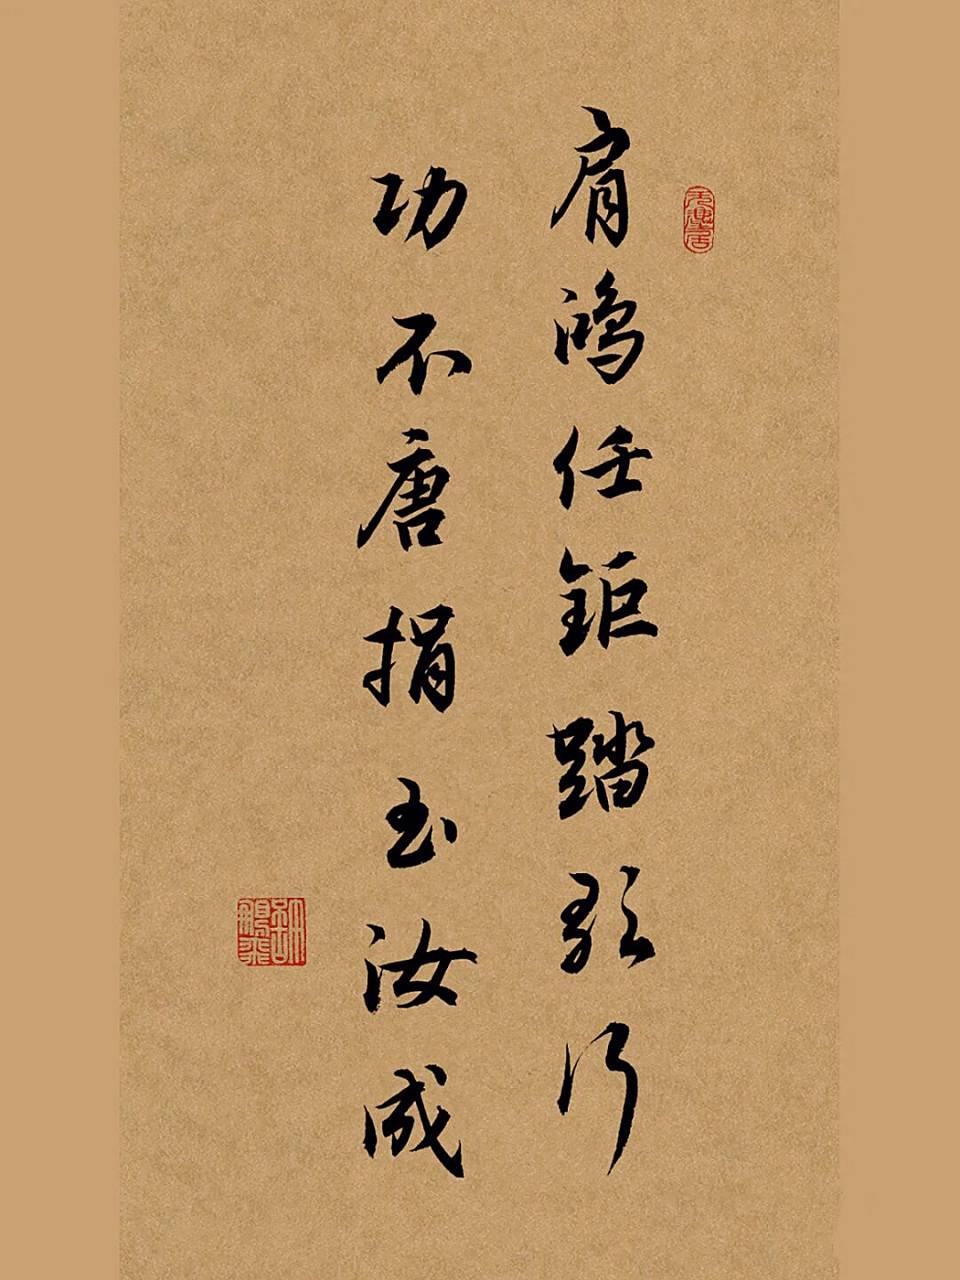 肩鴻任鉅踏歌行
功不唐捐玉汝成